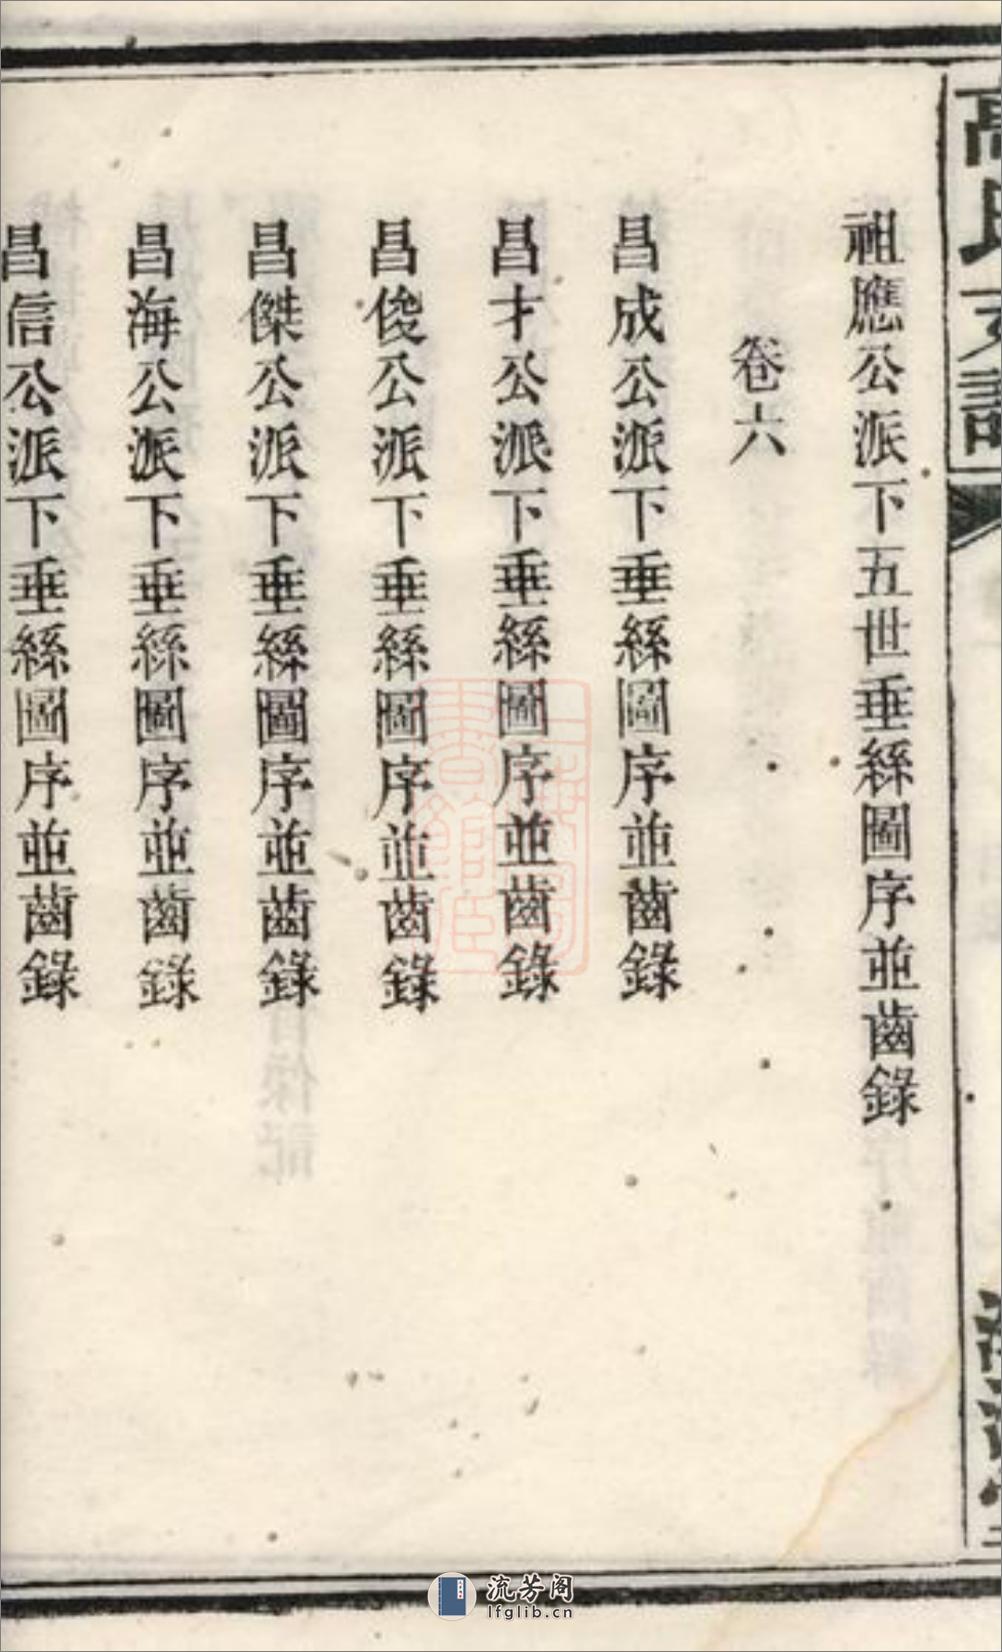 高氏支譜
祖應公派下五世垂絲圖序並齒錄
卷六
昌成公派下垂絲圖序並齒錄
昌才公派下垂絲圖序並齒錄
昌俊公派下垂絲圖序並齒錄
昌傑公派下垂絲圖序並齒錄
昌海公派下垂絲圖序並齒錄
昌信公派下垂絲圖序並齒錄
流芳阁
lfglib.cn